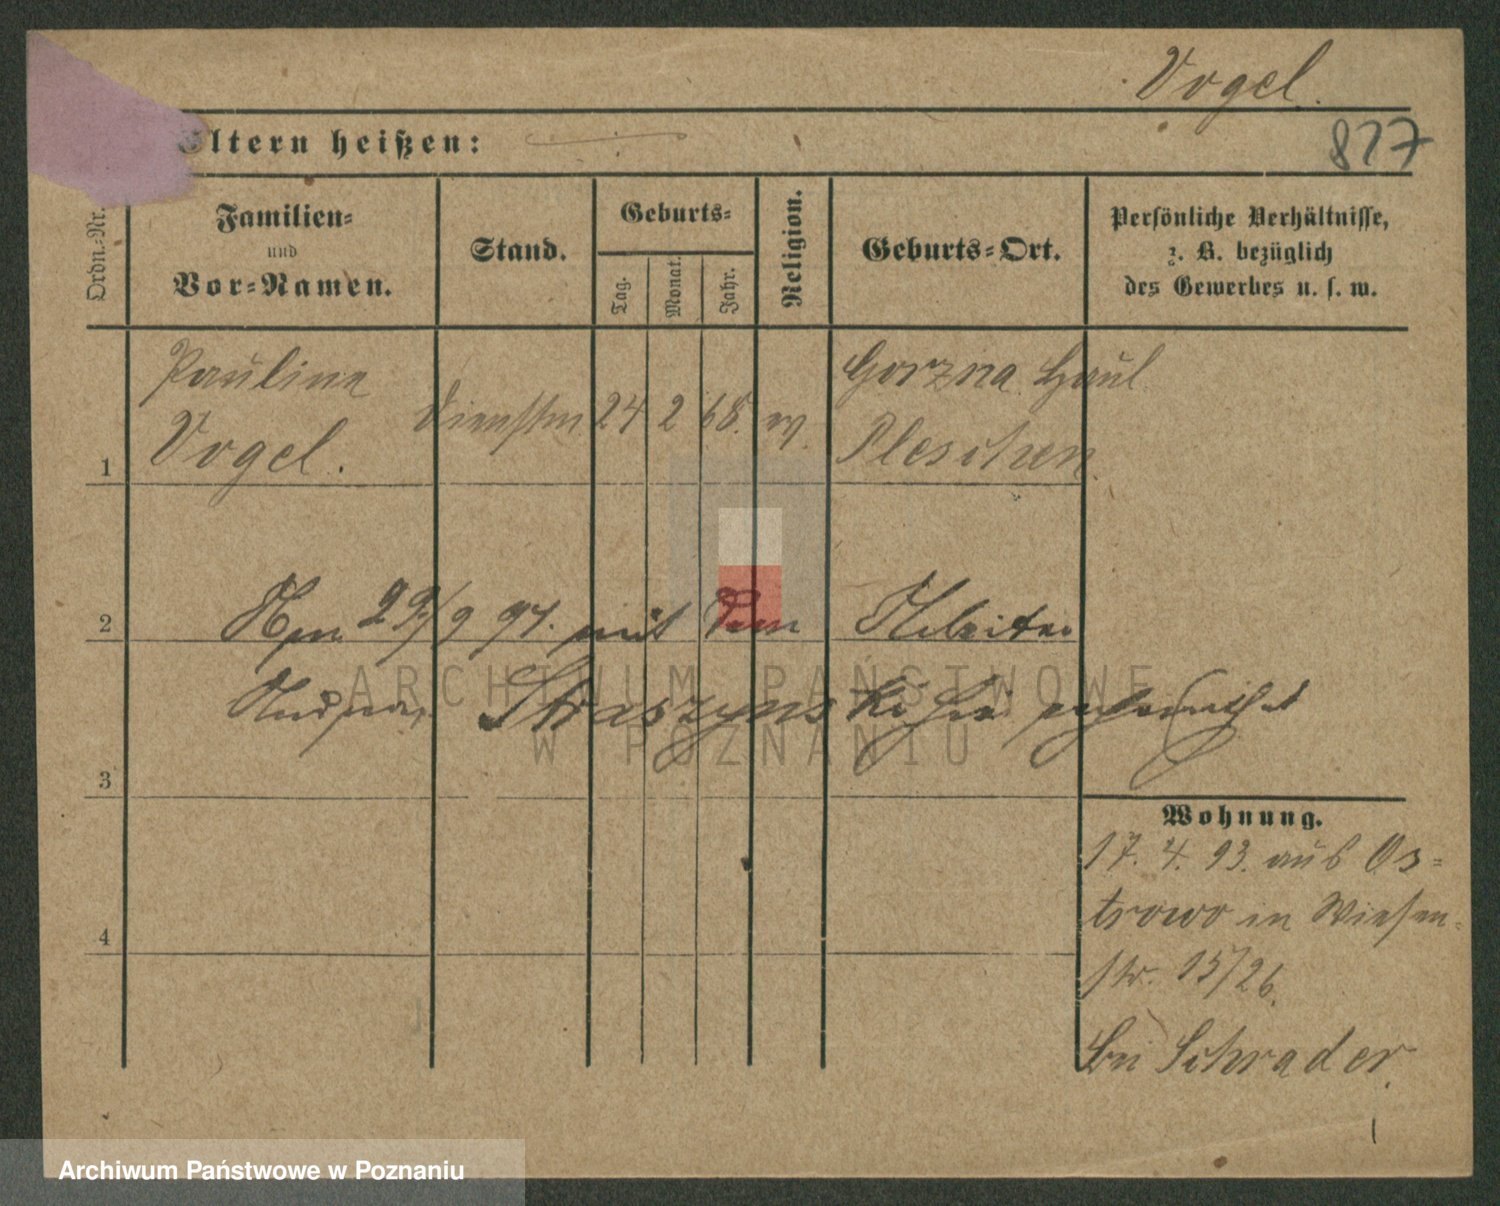 Vogel.
Eltern heißen:
827
Ordn.-Nr.
Familien-
und
Vor-Namen.
Stand.
Geburts-
Tag.
Monat.
Jahr.
Religion.
Geburts-Ort.
Persönliche Verhältnisse,
z. B. bezüglich
des Gewerbes u. s. w.
Pauline
Vogel.
24 2 68.
Gorzna
Pleschen
1
2
Am 29/9 97. mit dem Arbeiter
Straszynski hier
3
Wohnung.
17. 4. 93. aus Os-
trowo in Wiesen-
str. 15/26.
bei Schrader.
4
ARCHIWUM PAŃSTWOWE
W POZNANIU
Archiwum Państwowe w Poznaniu